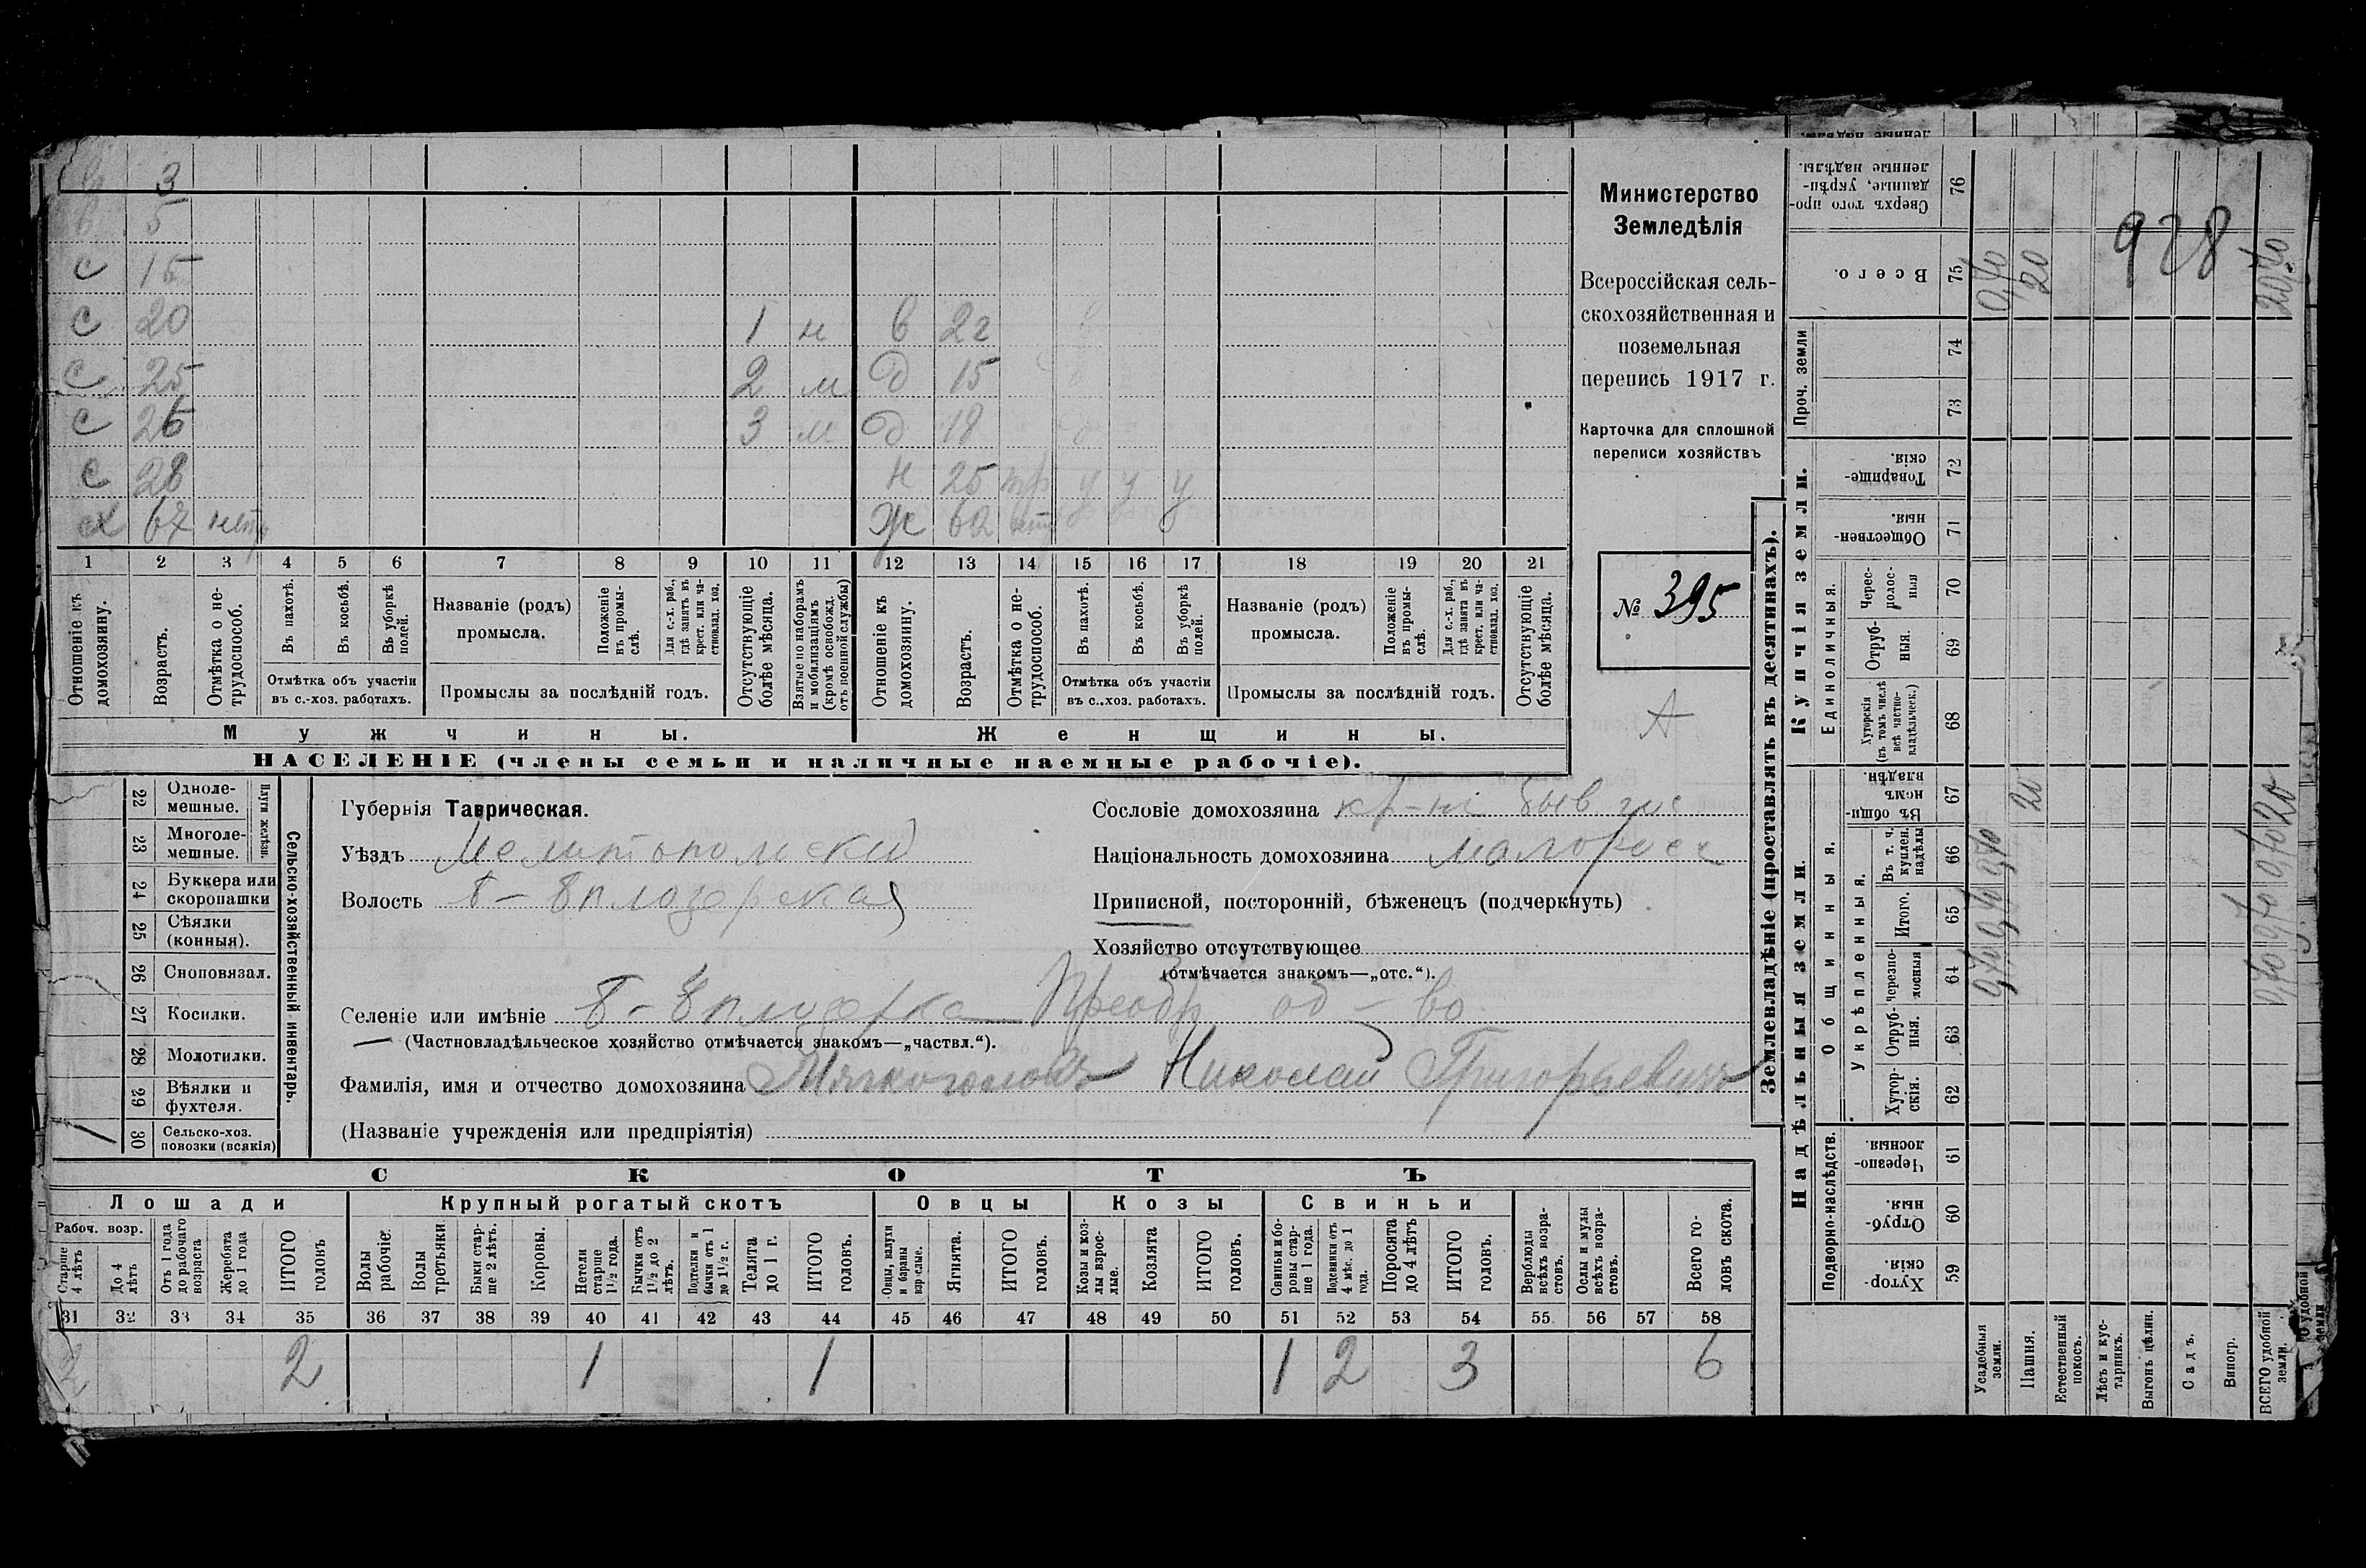 3
в 5
с 15
с 20 1 н в 22
с 25 2 м д 15
с 26 3 м д 18
с 28 н 25 тр у у у
х 67 нетр ж 62
1 2 3 4 5 6 7 8 9 10 11 12 13 14 15 16 17 18 19 20 21
Отношеніе къ домохозяину.
Возрастъ.
Отмѣтка о нетрудоспособ.
Въ пахотѣ.
Въ косьбѣ.
Въ уборкѣ полей.
Отмѣтка объ участіи въ с.-хоз. работахъ.
Названіе (родъ) промысла.
Положеніе въ промыслѣ.
Для с.-х. раб., гдѣ занятъ въ крест. или частновлад. хоз.
Промыслы за послѣдній годъ.
Отсутствующіе болѣе мѣсяца.
Взятые по наборамъ и мобилизаціямъ (кромѣ освобожд. отъ военной службы)
Отношеніе къ домохозяину.
Возрастъ.
Отмѣтка о нетрудоспособ.
Въ пахотѣ.
Въ косьбѣ.
Въ уборкѣ полей.
Отмѣтка объ участіи въ с..хоз. работахъ.
Названіе (родъ) промысла.
Положеніе въ промыслѣ.
Для с.-х. раб., гдѣ занята въ крест. или частновлад. хоз.
Промыслы за послѣдній годъ.
Отсутствующіе болѣе мѣсяца.
Мужчины.
Женщины.
НАСЕЛЕНІЕ (члены семьи и наличные наемные рабочіе).
Министерство
Земледѣлія
Всероссійская сель-
скохозяйственная и
поземельная
перепись 1917 г.
Карточка для сплошной
переписи хозяйствъ
№ 395
А
Сельско-хозяйственный инвентарь.
Плуги желѣзн.
22 Однолемешные.
23 Многолемешные.
24 Буккера или скоропашки
25 Сѣялки (конныя).
26 Сноповязал.
27 Косилки.
28 Молотилки.
29 Вѣялки и фухтеля.
30 Сельско-хоз. повозки (всякія) 1
Губернія Таврическая.
Уѣздъ Мелитопольскій
Волость Б-Бплозерская
Сословіе домохозяина кр-не быв гос
Національность домохозяина малоросс
Приписной, посторонній, бѣженецъ (подчеркнуть)
Хозяйство отсутствующее
(отмѣчается знакомъ—„отс.“).
Селеніе или имѣніе Преобр об-во
(Частновладѣльческое хозяйство отмѣчается знакомъ—„частвл.“).
Фамилія, имя и отчество домохозяина Николай Григорьевичъ
(Названіе учрежденія или предпріятія)
СКОТЪ
Лошади
Крупный рогатый скотъ
Овцы
Козы
Свиньи
Рабоч. возр.
Старше 4 лѣтъ
До 4 лѣтъ
Отъ 1 года до рабочаго возраста
Жеребята до 1 года
ИТОГО головъ
Волы рабочіе.
Волы третьяки.
Быки старше 2 лѣтъ.
Коровы.
Нетели старше 1½ года.
Бычки отъ 1½ до 2 лѣтъ.
Подтелки и бычки отъ 1 до 1½ г.
Телята до 1 г.
ИТОГО головъ.
Овцы, валухи и бараны взрослые.
Ягнята.
ИТОГО головъ.
Козы и козлы взрослые.
Козлята
ИТОГО головъ.
Свиньи и боровы старше 1 года.
Подсвинки отъ 4 мѣс. до 1 года.
Поросята до 4 лѣтъ
ИТОГО головъ.
Верблюды всѣхъ возрастовъ.
Ослы и мулы всѣхъ возрастовъ.
Всего головъ скота.
31 32 33 34 35 36 37 38 39 40 41 42 43 44 45 46 47 48 49 50 51 52 53 54 55 56 57 58
2 2 1 1 1 2 3 6
Землевладѣніе (проставлять въ десятинахъ).
Надѣльныя земли.
Купчія земли.
Проч. земли
Подворно-наслѣдств.
Общинныя.
Укрѣпленныя.
Единоличныя.
59 Хуторскія.
60 Отрубныя.
61 Черезполосныя
62 Хуторскія.
63 Отрубныя.
64 Черезполосныя
65 Итого.
66 Въ т. ч. куплен. надѣлы
67 Въ общинномъ владѣн.
68 Хуторскія (въ томъ числѣ всѣ частновладѣльческ.)
69 Отрубныя.
70 Чересполосныя
71 Общественныя.
72 Товарищескія.
73
74
75 Всего.
76 Сверхъ того проданные, укрѣпленные надѣлы.
Усадебныя земли. 0,40
Пашня. 20 20
Естественный покосъ.
Лѣсъ и кустарникъ.
Выгонъ цѣлин.
Садъ.
Виногр.
ВСЕГО удобной земли. 20 20,40
928